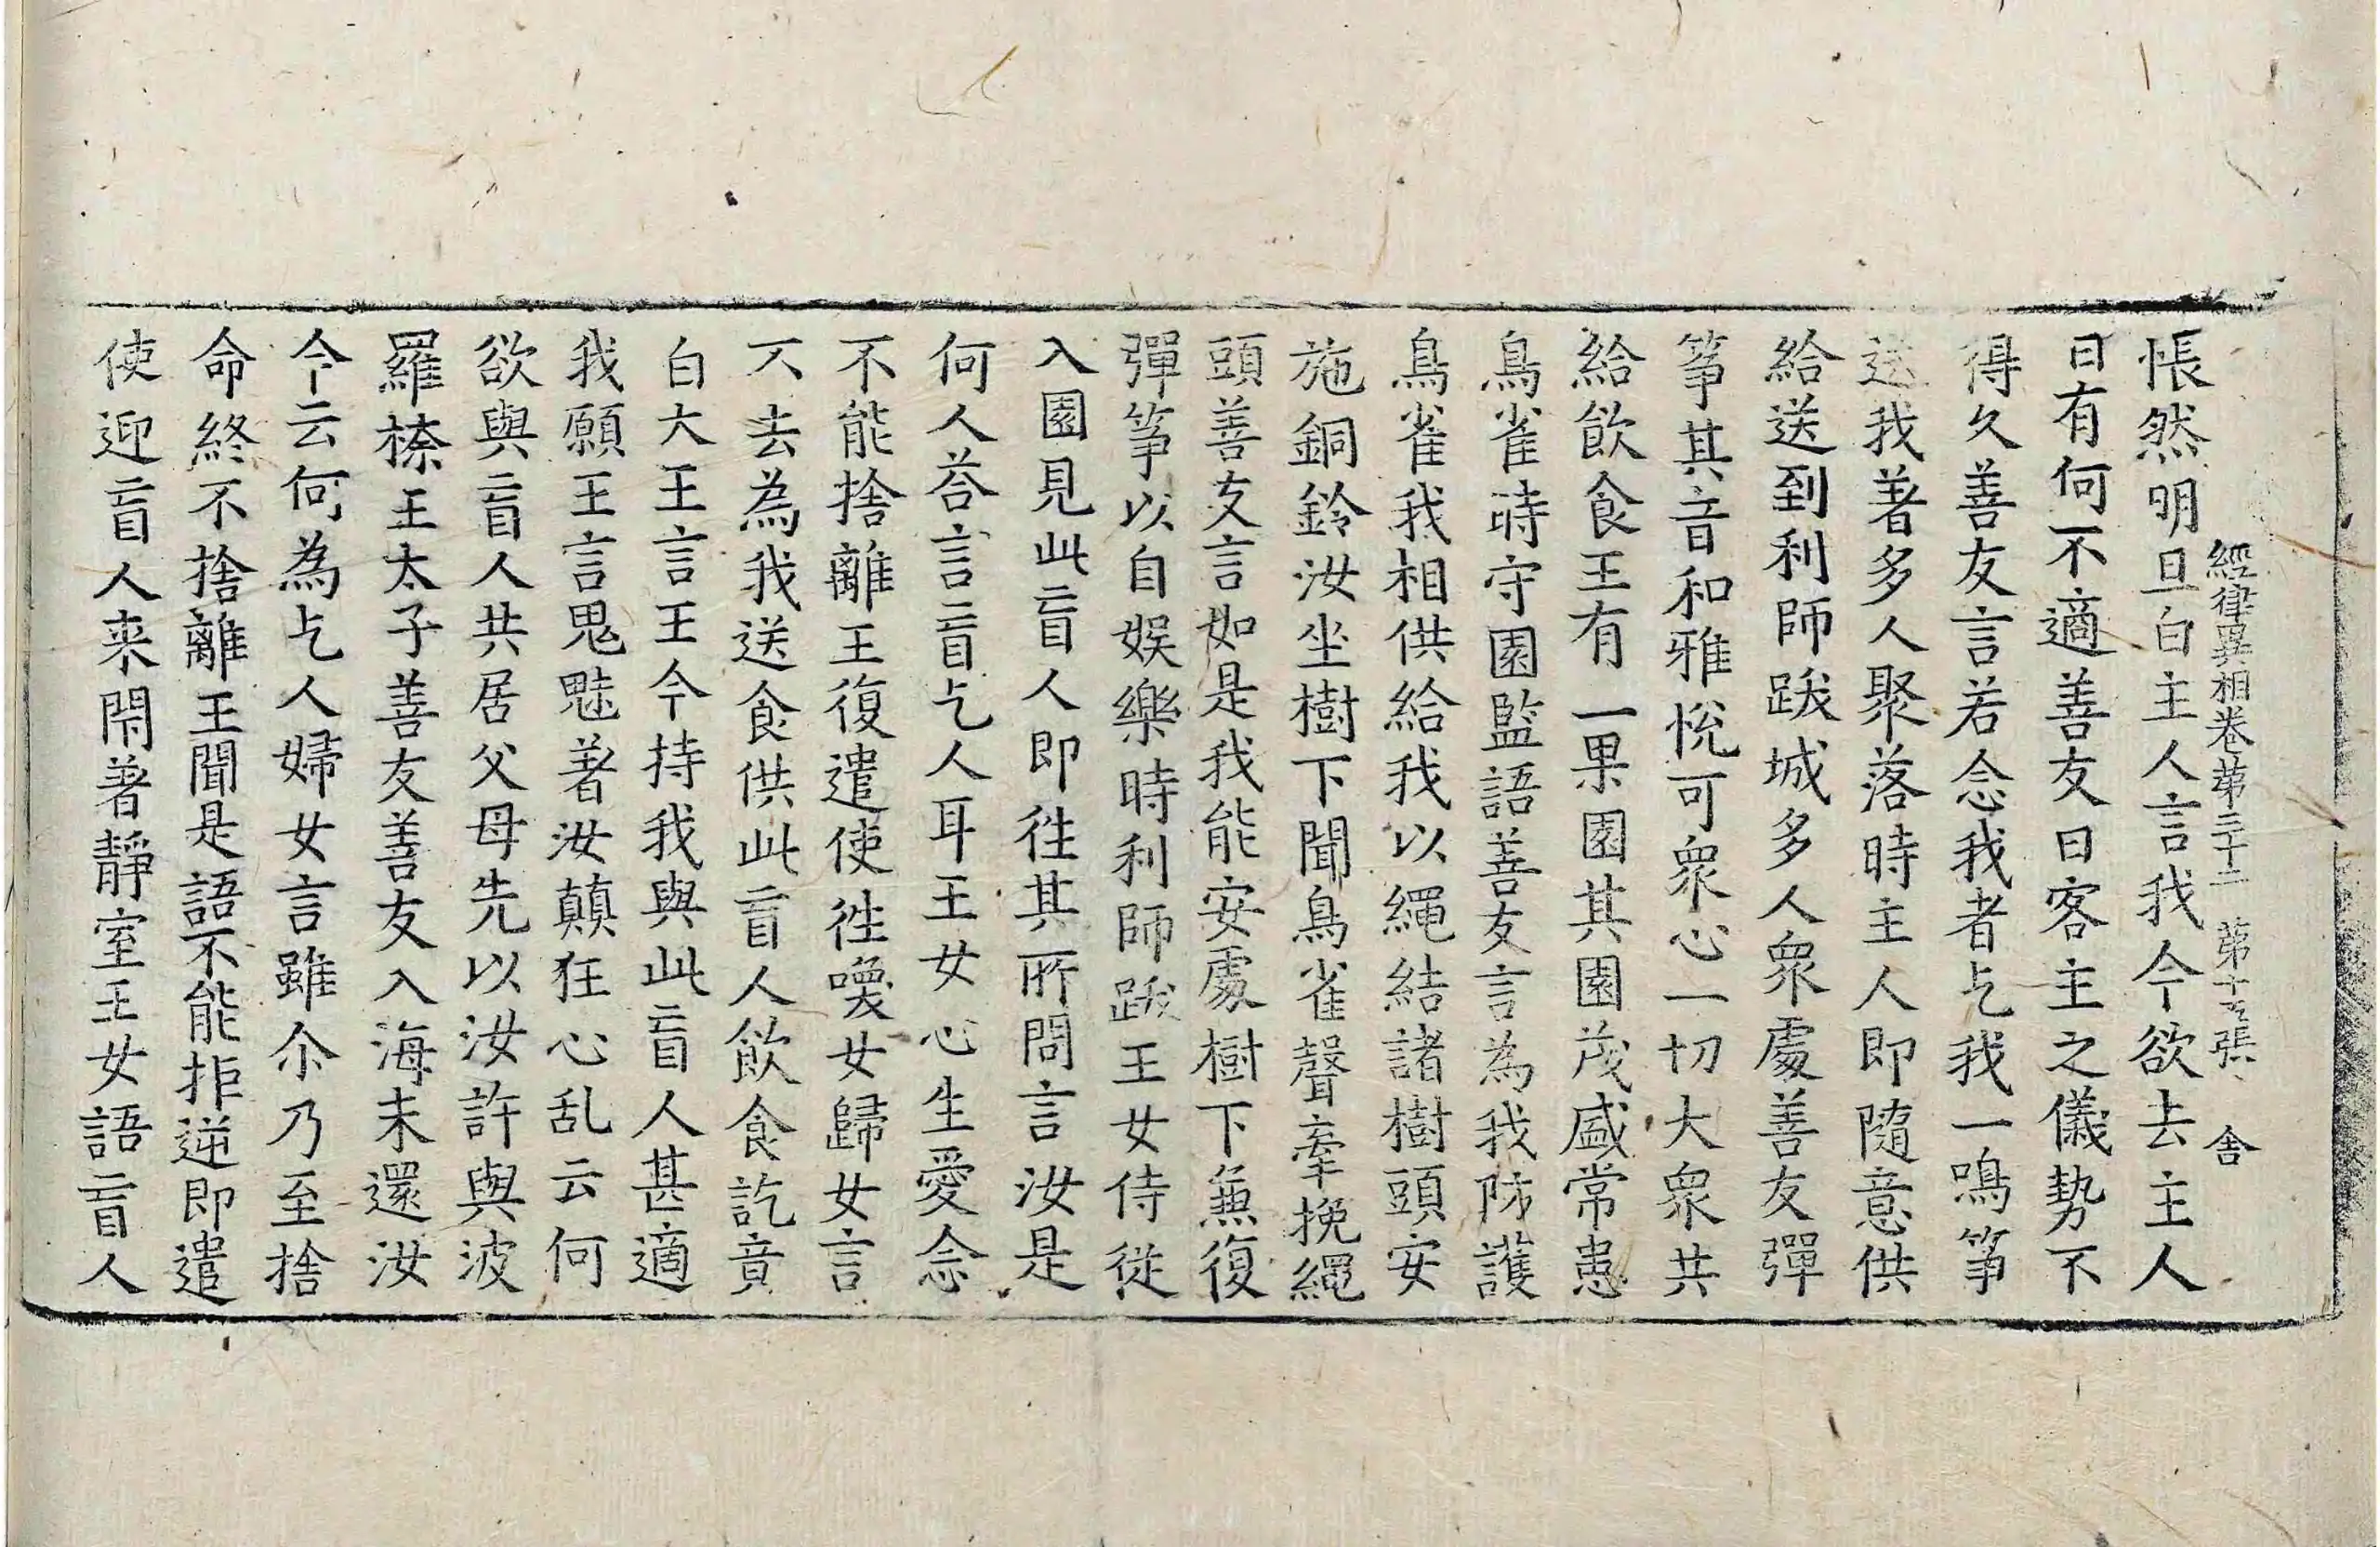 經律異相卷第三十二　第十五張　舍
悵然明旦白主人言我今欲去主人
曰有何不適善友曰客主之儀勢不
得久善友言若念我者乞我一鳴箏
送我著多人聚落時主人即隨意供
給送到利師跋城多人眾處善友彈
箏其音和雅悅可眾心一切大眾共
給飲食王有一果園其園茂盛常患
鳥雀時守園監語善友言為我防護
鳥雀我相供給我以繩結諸樹頭安
施銅鈴汝坐樹下聞鳥雀聲牽挽繩
頭善友言如是我能安處樹下無復
彈箏以自娛樂時利師跋王女侍從
入園見此盲人即往其所問言汝是
何人荅言盲乞人耳王女心生愛念
不能捨離王復遣使往喚女歸女言
不去為我送食供此盲人飲食訖竟
白大王言王今持我與此盲人甚適
我願王言鬼魅著汝顛狂心乱云何
欲與盲人共居父母先以汝許與波
羅㮈王太子善友善友入海未還汝
今云何為乞人婦女言雖尒乃至捨
命終不捨離王聞是語不能拒逆即遣
使迎盲人来閇著靜室王女語盲人